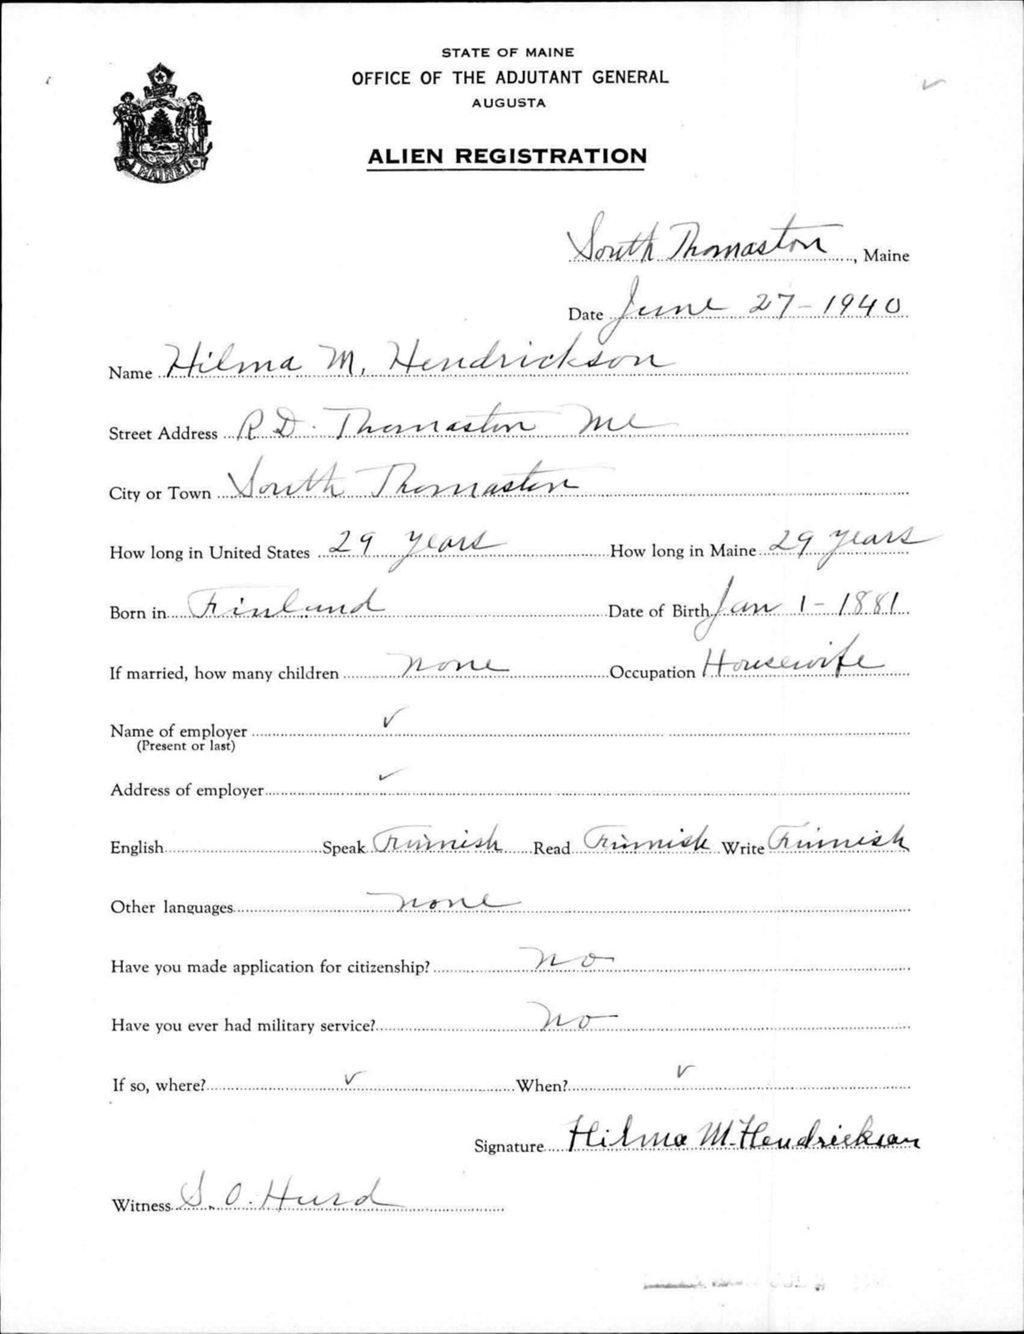 STATE OF MAINE
OFFICE OF THE ADJUTANT GENERAL
AUGUSTA
ALIEN REGISTRATION
MAINE
South Thomaston, Maine
Date June 27-1940
Name Hilma M. Hendrickson
Street Address R D. Thomaston Me
City or Town South Thomaston
How long in United States 29 years How long in Maine 29 years
Born in Finland Date of Birth Jan 1-1881
If married, how many children none Occupation Housewife
Name of employer ✓
(Present or last)
Address of employer ✓
English Speak Finnish Read Finnish Write Finnish
Other languages none
Have you made application for citizenship? no
Have you ever had military service? no
If so, where? ✓ When? ✓
Signature Hilma M. Hendrickson
Witness S. O. Hurd